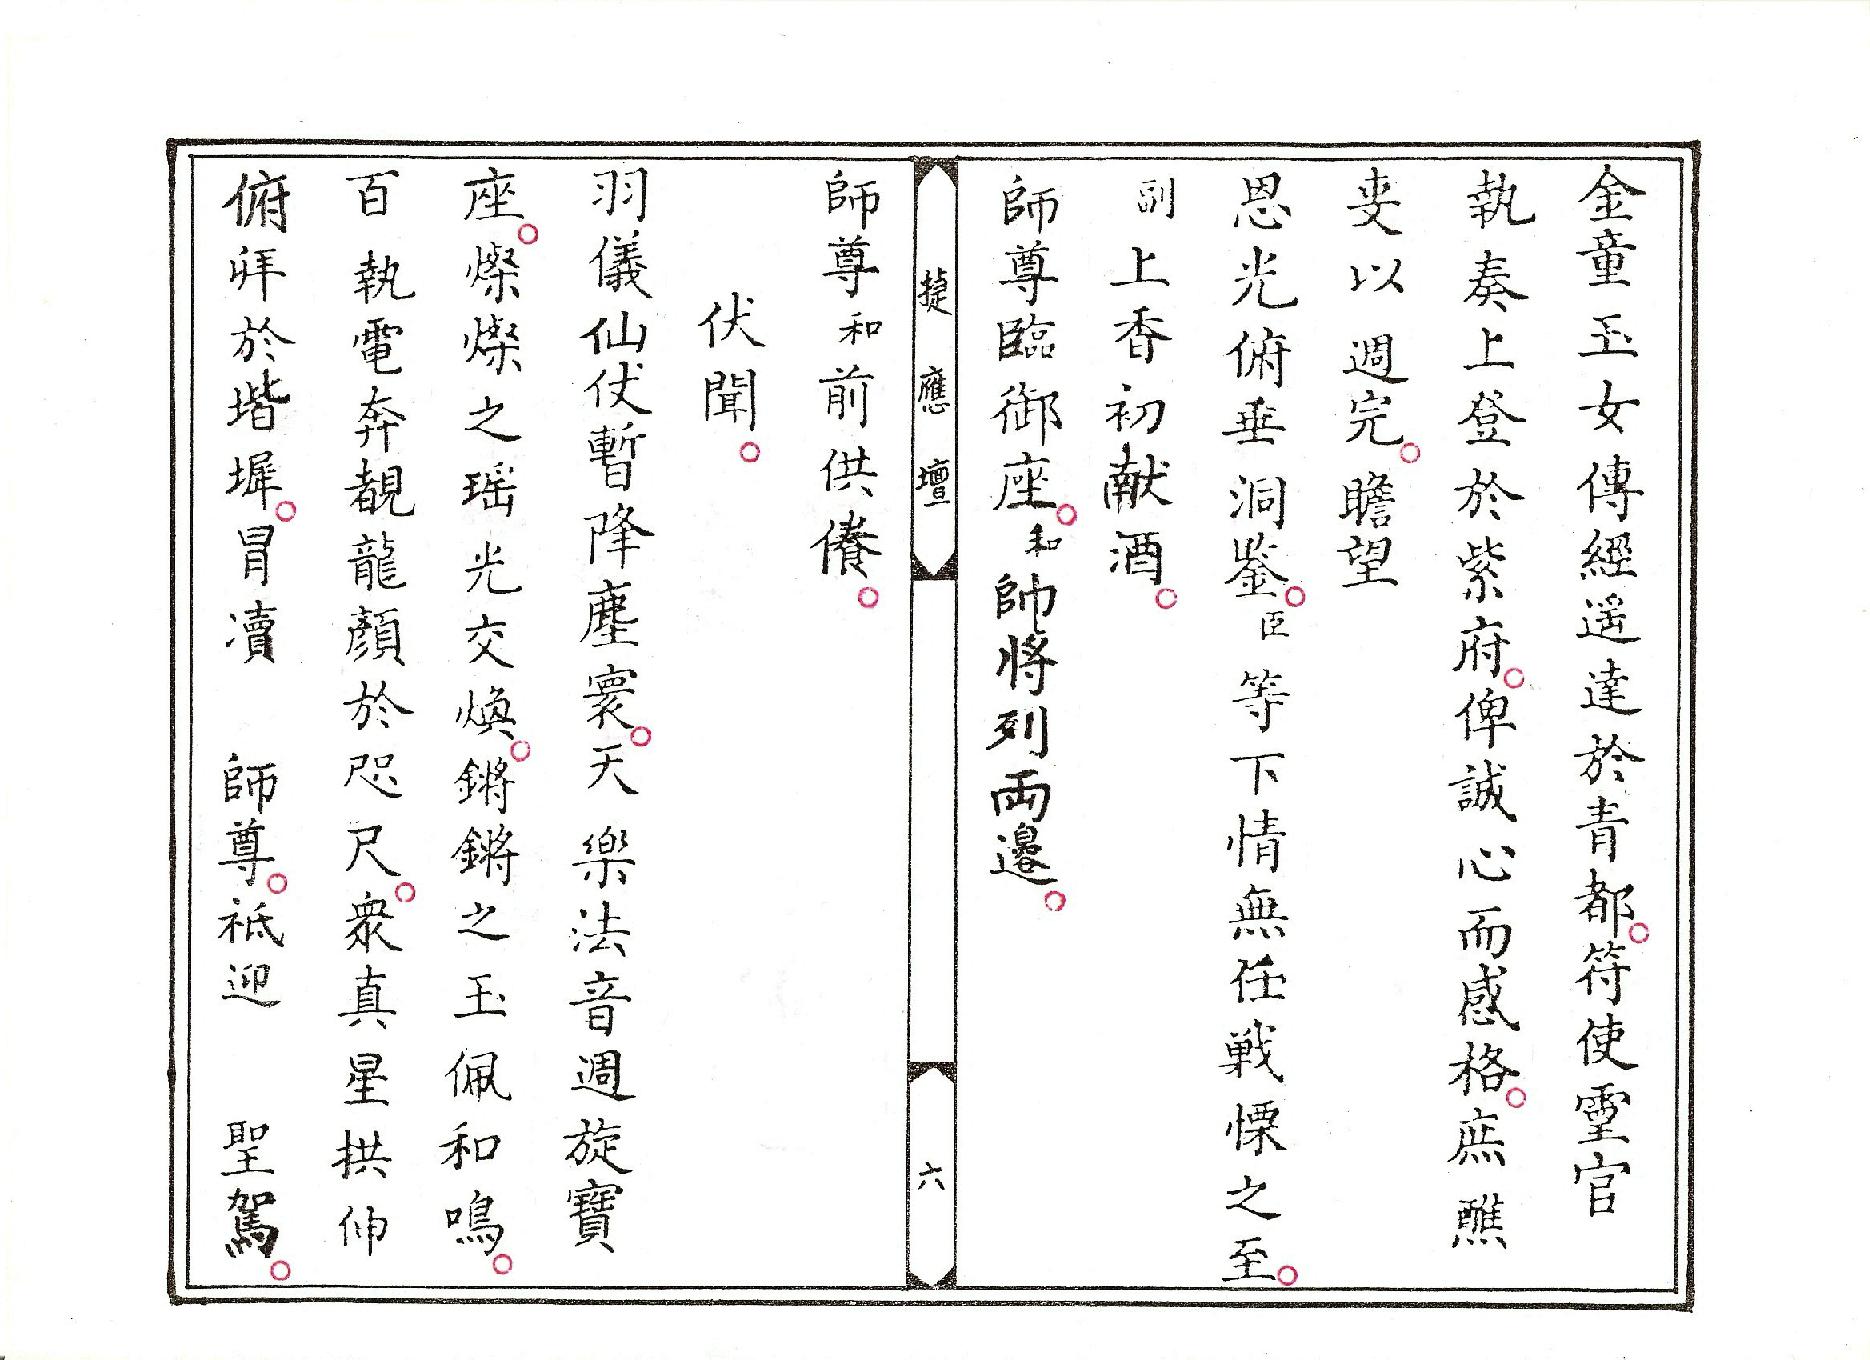 金童玉女傳經遥達於青都。符使靈官
執奏上登於紫府。俾誠心而感格。庶醮
叓以週完。瞻望
恩光俯垂洞鉴。臣等下情無任戰慄之至。
副上香初献酒。
師尊臨御座。和帥將列両邊。
捷應壇
六
師尊和前供養。
伏聞。
羽儀仙仗暫降塵寰。天樂法音週旋寶
座。燦燦之瑶光交煥。鏘鏘之玉佩和鳴。
百執電奔覩龍顏於咫尺。衆真星拱伸
俯拜於堦墀。冒瀆師尊。祗迎聖駕。